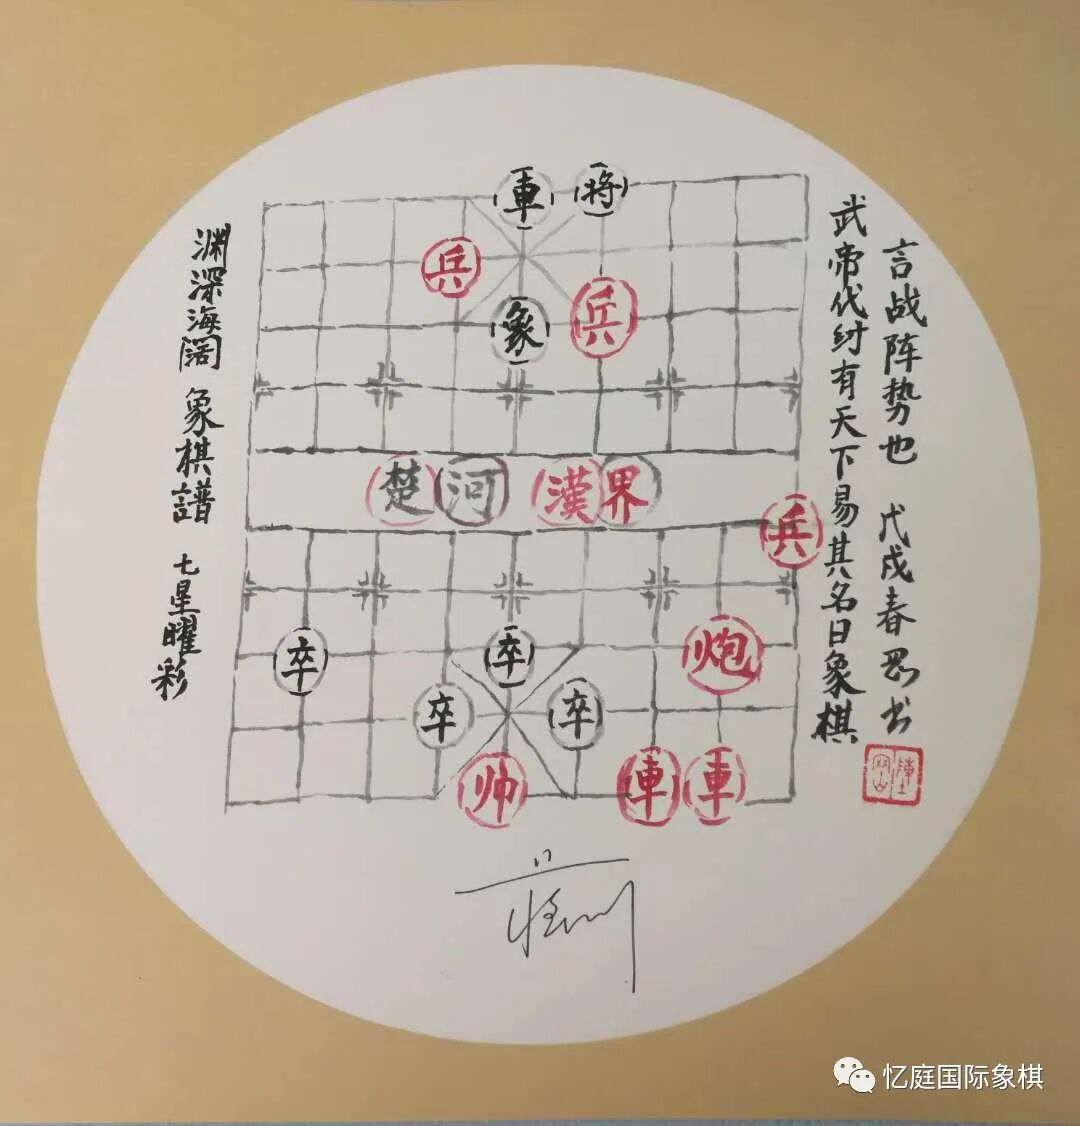 言战阵势也 戊戌春 书
武帝代纣有天下易其名曰象棋
車 将
兵
兵
象
楚河 漢界
兵
卒 卒 炮
卒 卒
帅 車 車
渊深海阔 象棋譜 七星曜彩
忆庭国际象棋